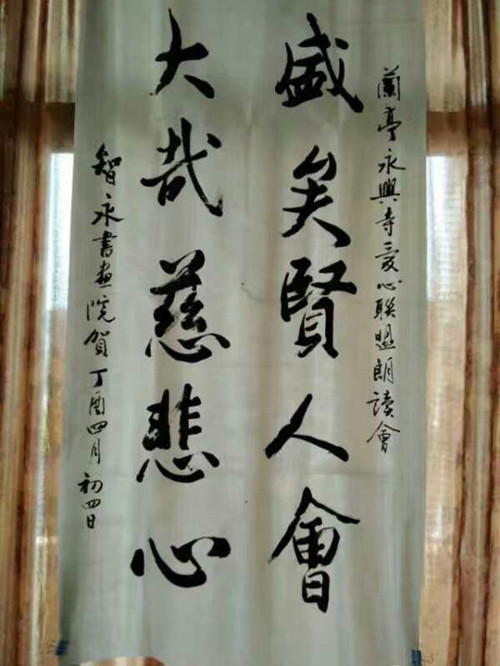 蘭亭永興寺愛心聯盟朗读會
盛矣賢人會
大哉慈悲心
智永書畫院贺丁酉四月初四日